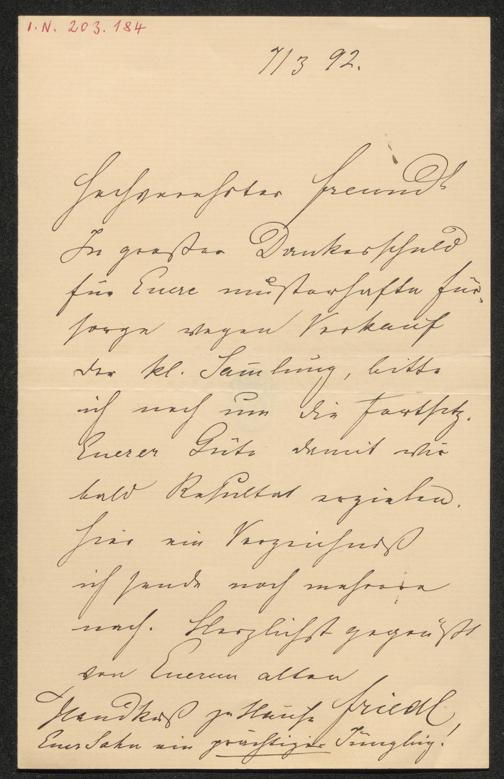 I.N. 203.184
7/3 92.
Hochverehrter Freund
In großer Dankesschuld
für Euere musterhafte Für-
sorge wegen Verkauf
der kl. Samlung, bitte
ich noch um die Fortsetz.
Euerer Güte damit wir
bald Resultat erzielen.
Hier ein Verzeichniß
ich sende noch mehrere
nach. Herzlichst gegrüßt
von Euerem alten
Handkuß zu Hause Friedl,
Euer Sohn ein prächtiger Jüngling.